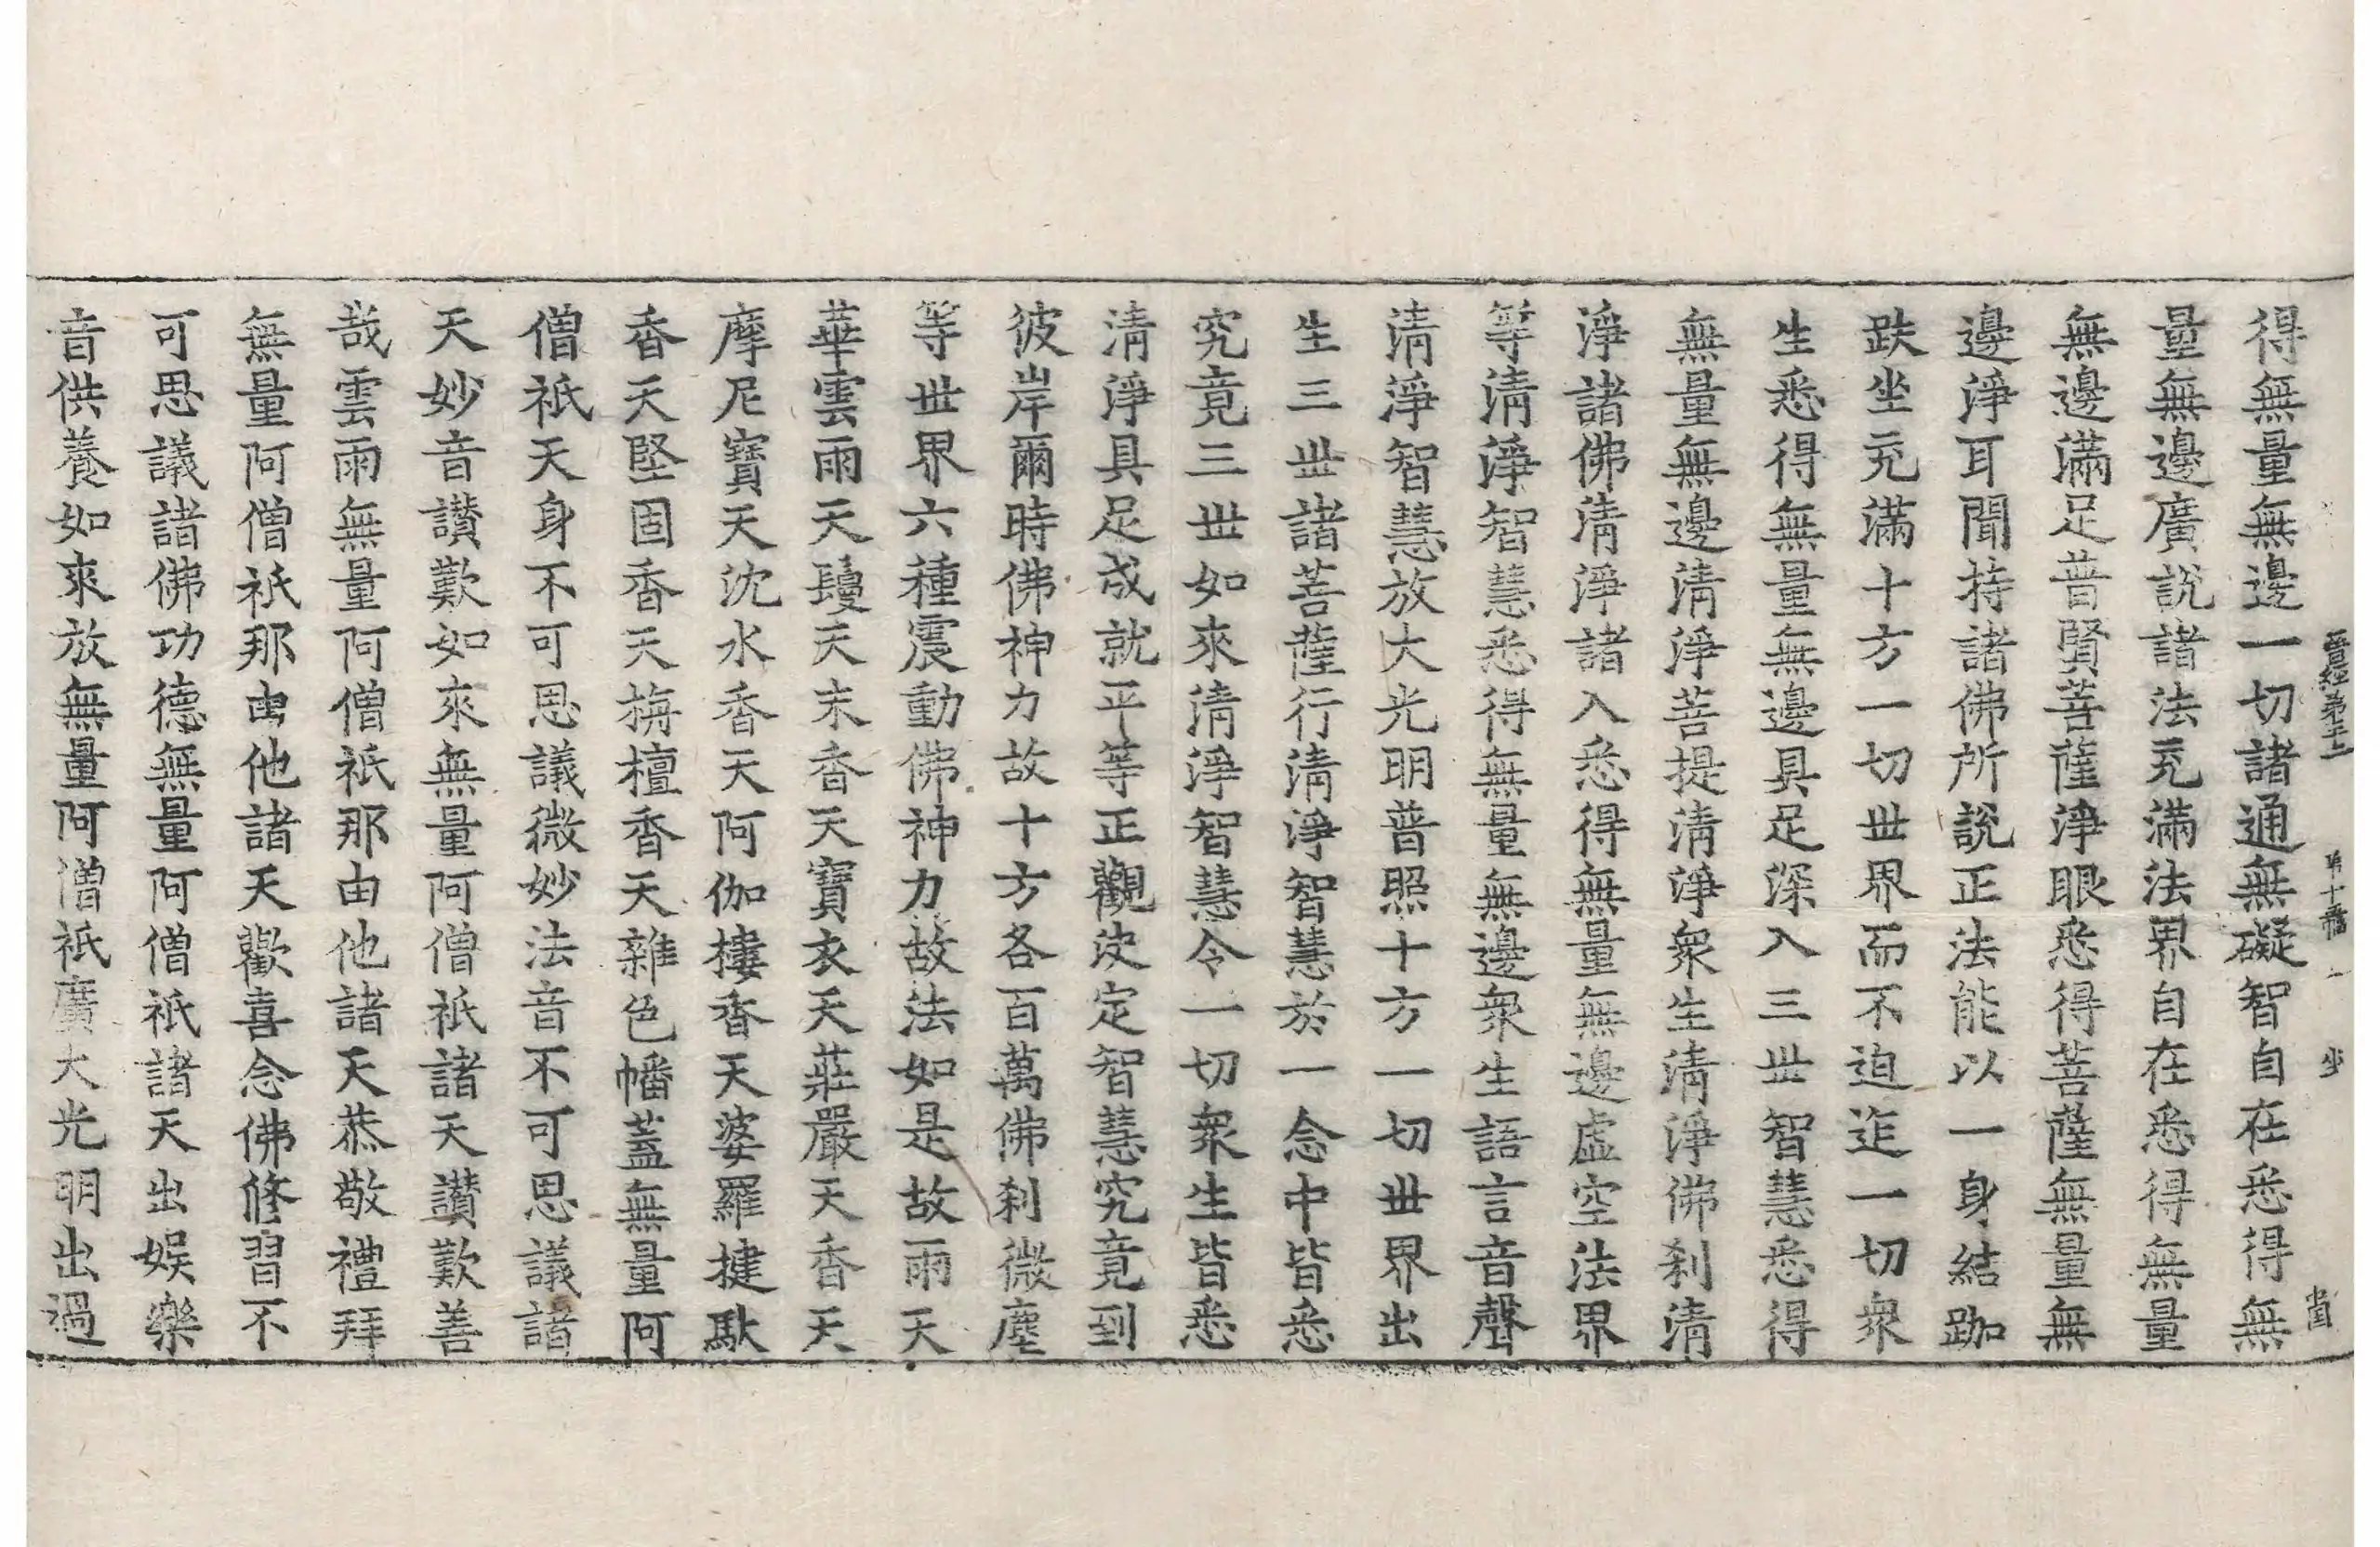 晋經第二十 第十張 坐
得無量無邊一切諸通無礙智自在悉得無
量無邊廣說諸法充滿法界自在悉得無量
無邊滿足普賢菩薩淨眼悉得菩薩無量無
邊淨耳聞持諸佛所說正法能以一身結跏
趺坐充滿十方一切世界而不迫迮一切衆
生悉得無量無邊具足深入三世智慧悉得
無量無邊清淨菩提清淨衆生清淨佛刹清
淨諸佛清淨諸入悉得無量無邊虛空法界
等清淨智慧悉得無量無邊衆生語言音聲
清淨智慧放大光明普照十方一切世界出
生三世諸菩薩行清淨智慧於一念中皆悉
究竟三世如來清淨智慧令一切衆生皆悉
清淨具足成就平等正觀決定智慧究竟到
彼岸爾時佛神力故十方各百萬佛刹微塵
等世界六種震動佛神力故法如是故雨天
華雲雨天鬘天末香天寶衣天莊嚴天香天
摩尼寶天沈水香天阿伽樓香天婆羅揵馱
香天堅固香天栴檀香天雜色幡蓋無量阿
僧祇天身不可思議微妙法音不可思議諸
天妙音讃歎如來無量阿僧祇諸天讃歎善
哉雲雨無量阿僧祇那由他諸天恭敬禮拜
無量阿僧祇那由他諸天歡喜念佛修習不
可思議諸佛功德無量阿僧祇諸天出娛樂
音供養如來放無量阿僧祇廣大光明出過